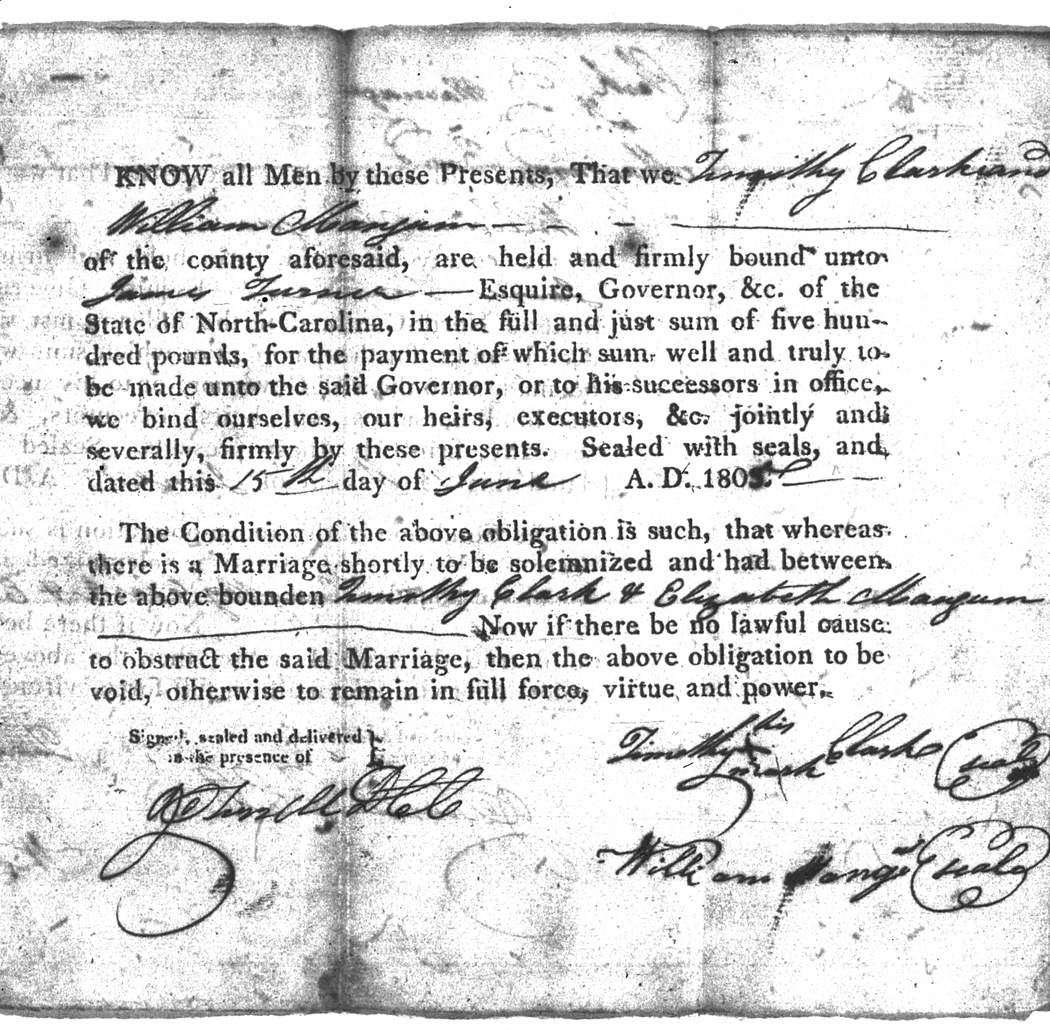 KNOW all Men by these Presents, That we Timothy Clark and
William Mangum
of the county aforesaid, are held and firmly bound unto
James Turner Esquire, Governor, &c. of the
State of North-Carolina, in the full and just sum of five hun-
dred pounds, for the payment of which sum well and truly to
be made unto the said Governor, or to his successors in office,
we bind ourselves, our heirs, executors, &c. jointly and
severally, firmly by these presents. Sealed with seals, and
dated this 15th day of June A. D. 1805
The Condition of the above obligation is such, that whereas
there is a Marriage shortly to be solemnized and had between
the above bounden Timothy Clark & Elizabeth Mangum
Now if there be no lawful cause
to obstruct the said Marriage, then the above obligation to be
void, otherwise to remain in full force, virtue and power.
Signed, sealed and delivered
in the presence of
his
Timothy Clark seal
mark
William Mang seal